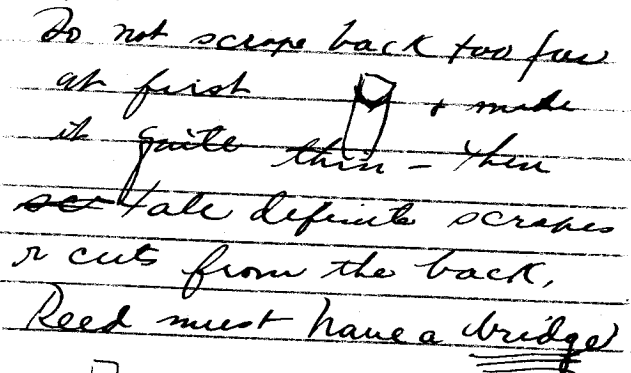 Do not scrape back too far
at first & made
it quite thin – then
take definite scrapes
or cuts from the back.
Reed must have a bridge